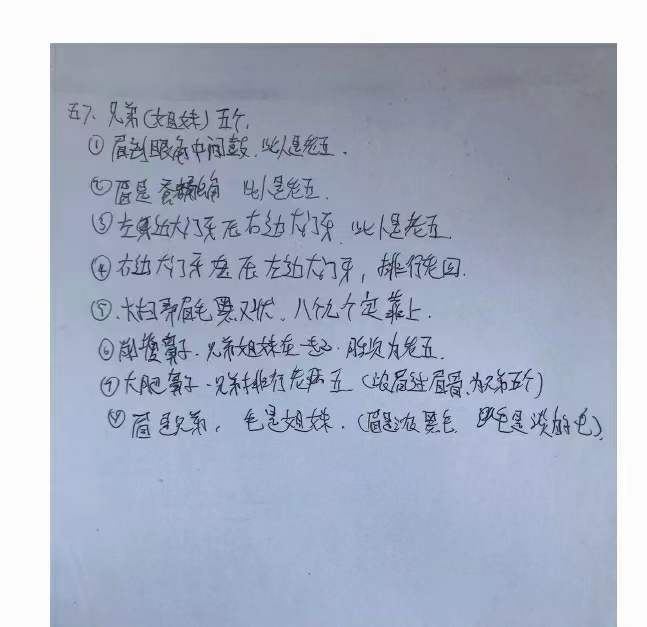 五7、兄弟(女姐妹)五个,
① 眉到眼角中间鼓.此人是老五.
② 眉是 角 此人是老五.
③ 左边大门牙压右边大门牙.此人是老五.
④ 右边大门牙压左边大门牙,排行老四.
⑤ 大扫帚眉毛叉状、八个九个定靠上.
⑥ 鼻子.兄弟姐妹在一起.所负为老五.
⑦ 大肥鼻子.兄弟排行老五(浓眉过眉骨.为兄弟五个)
⑧ 眉是兄弟,毛是姐妹.(眉是浓黑毛.毛是淡的毛).